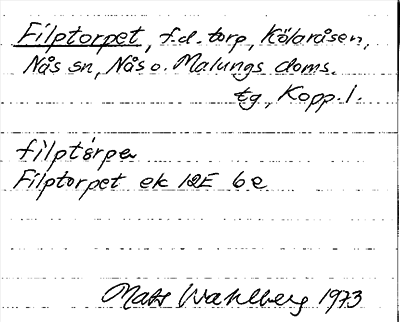 Filptorpet, f.d. torp, Kölaråsen,
Nås sn, Nås o. Malungs doms.
tg., Kopp. l.
filptòrpe
Filptorpet ek 12E 6e
Mats Wahlberg 1973